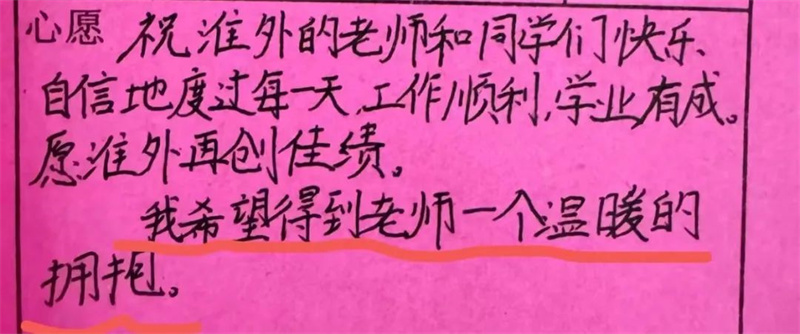 心愿 祝淮外的老师和同学们快乐、
自信地度过每一天,工作顺利,学业有成。
愿淮外再创佳绩。
我希望得到老师一个温暖的
拥抱。